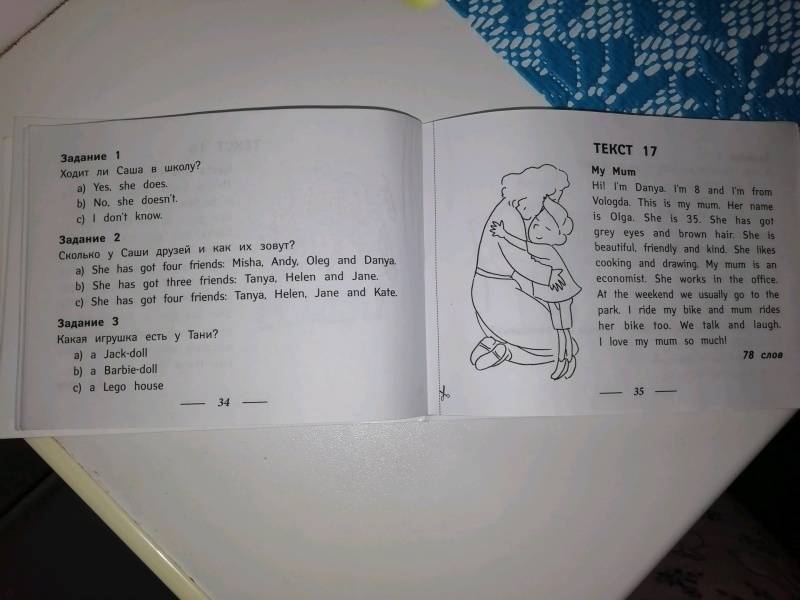 Задание 1
Ходит ли Саша в школу?
a) Yes, she does.
b) No, she doesn't.
c) I don't know.
Задание 2
Сколько у Саши друзей и как их зовут?
a) She has got four friends: Misha, Andy, Oleg and Danya.
b) She has got three friends: Tanya, Helen and Jane.
c) She has got four friends: Tanya, Helen, Jane and Kate.
Задание 3
Какая игрушка есть у Тани?
a) a Jack-doll
b) a Barbie-doll
c) a Lego house
34
ТЕКСТ 17
My Mum
Hi! I'm Danya. I'm 8 and I'm from
Vologda. This is my mum. Her name
is Olga. She is 35. She has got
grey eyes and brown hair. She is
beautiful, friendly and kind. She likes
cooking and drawing. My mum is an
economist. She works in the office.
At the weekend we usually go to the
park. I ride my bike and mum rides
her bike too. We talk and laugh.
I love my mum so much!
78 слов
35